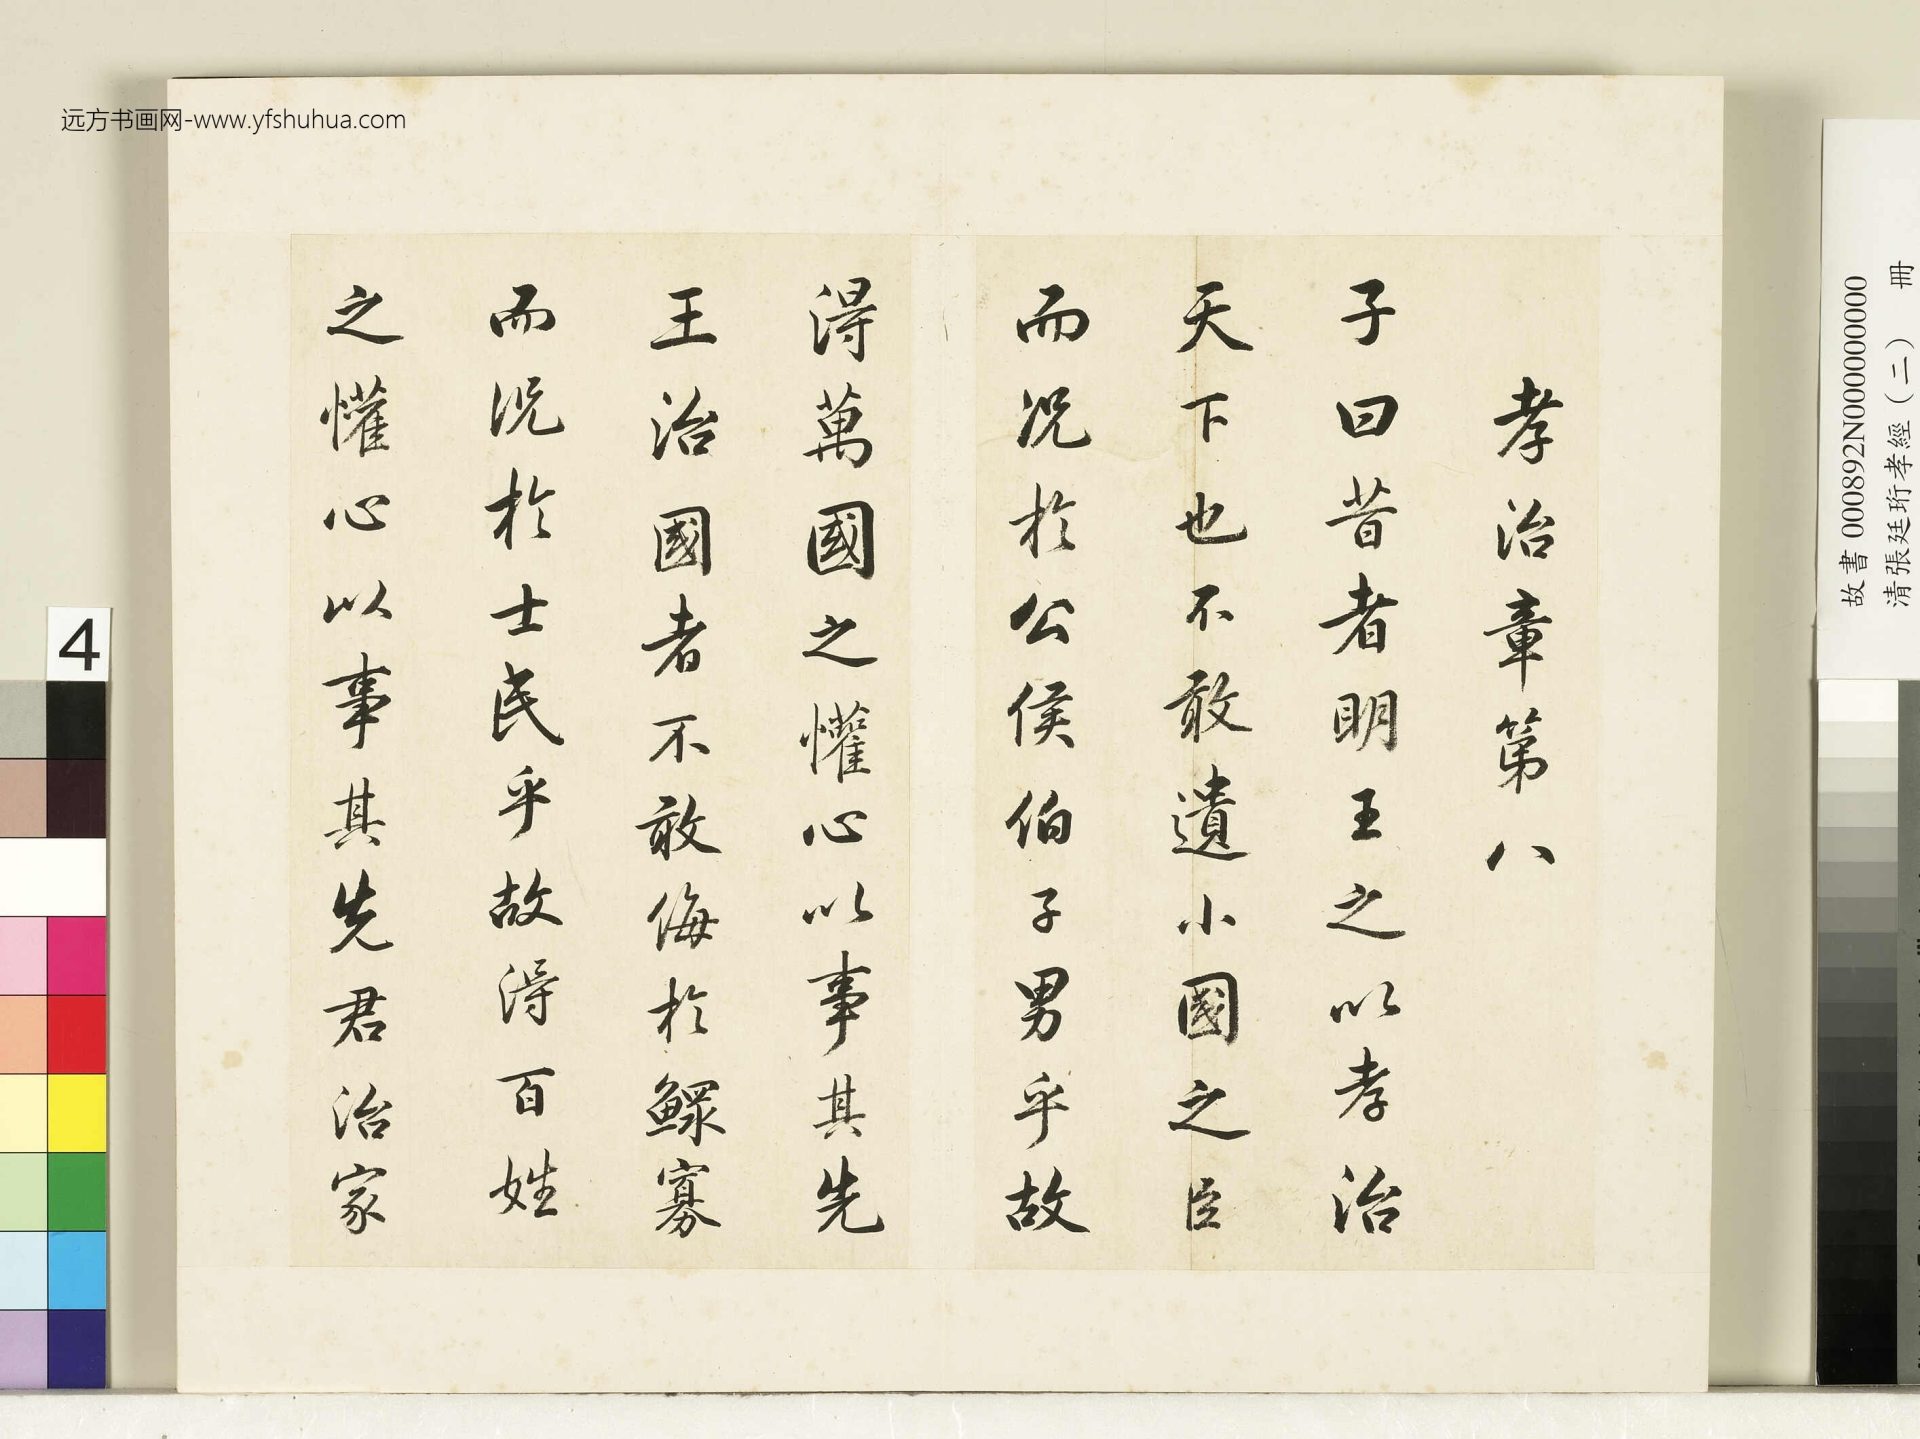 远方书画网-www.yfshuhua.com
孝治章第八
子曰昔者明王之以孝治
天下也不敢遺小國之臣
而况於公侯伯子男乎故
得萬國之懽心以事其先
王治國者不敢侮於鰥寡
而況於士民乎故得百姓
之懽心以事其先君治家
故書 000892N000000000
清張廷珩孝經（二） 冊
4